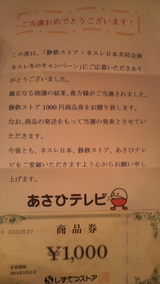 ご当選おめでとうございます！
この度は、「静鉄ストア・ネスレ日本共同企画
ネスレ冬のキャンペーン」にご応募いただきあり
がとうございました。
厳正なる抽選の結果、貴方様がご当選されました。
静鉄ストア 1000 円商品券をお贈り致します。
なお、商品の発送をもって当選の発表とさせてい
ただきます。
今後とも、ネスレ日本、静鉄ストア、あさひテレ
ビをご愛顧いただきますよう心からお願い申し
上げます。
あさひテレビ
商品券
¥1,000
しずてつストア